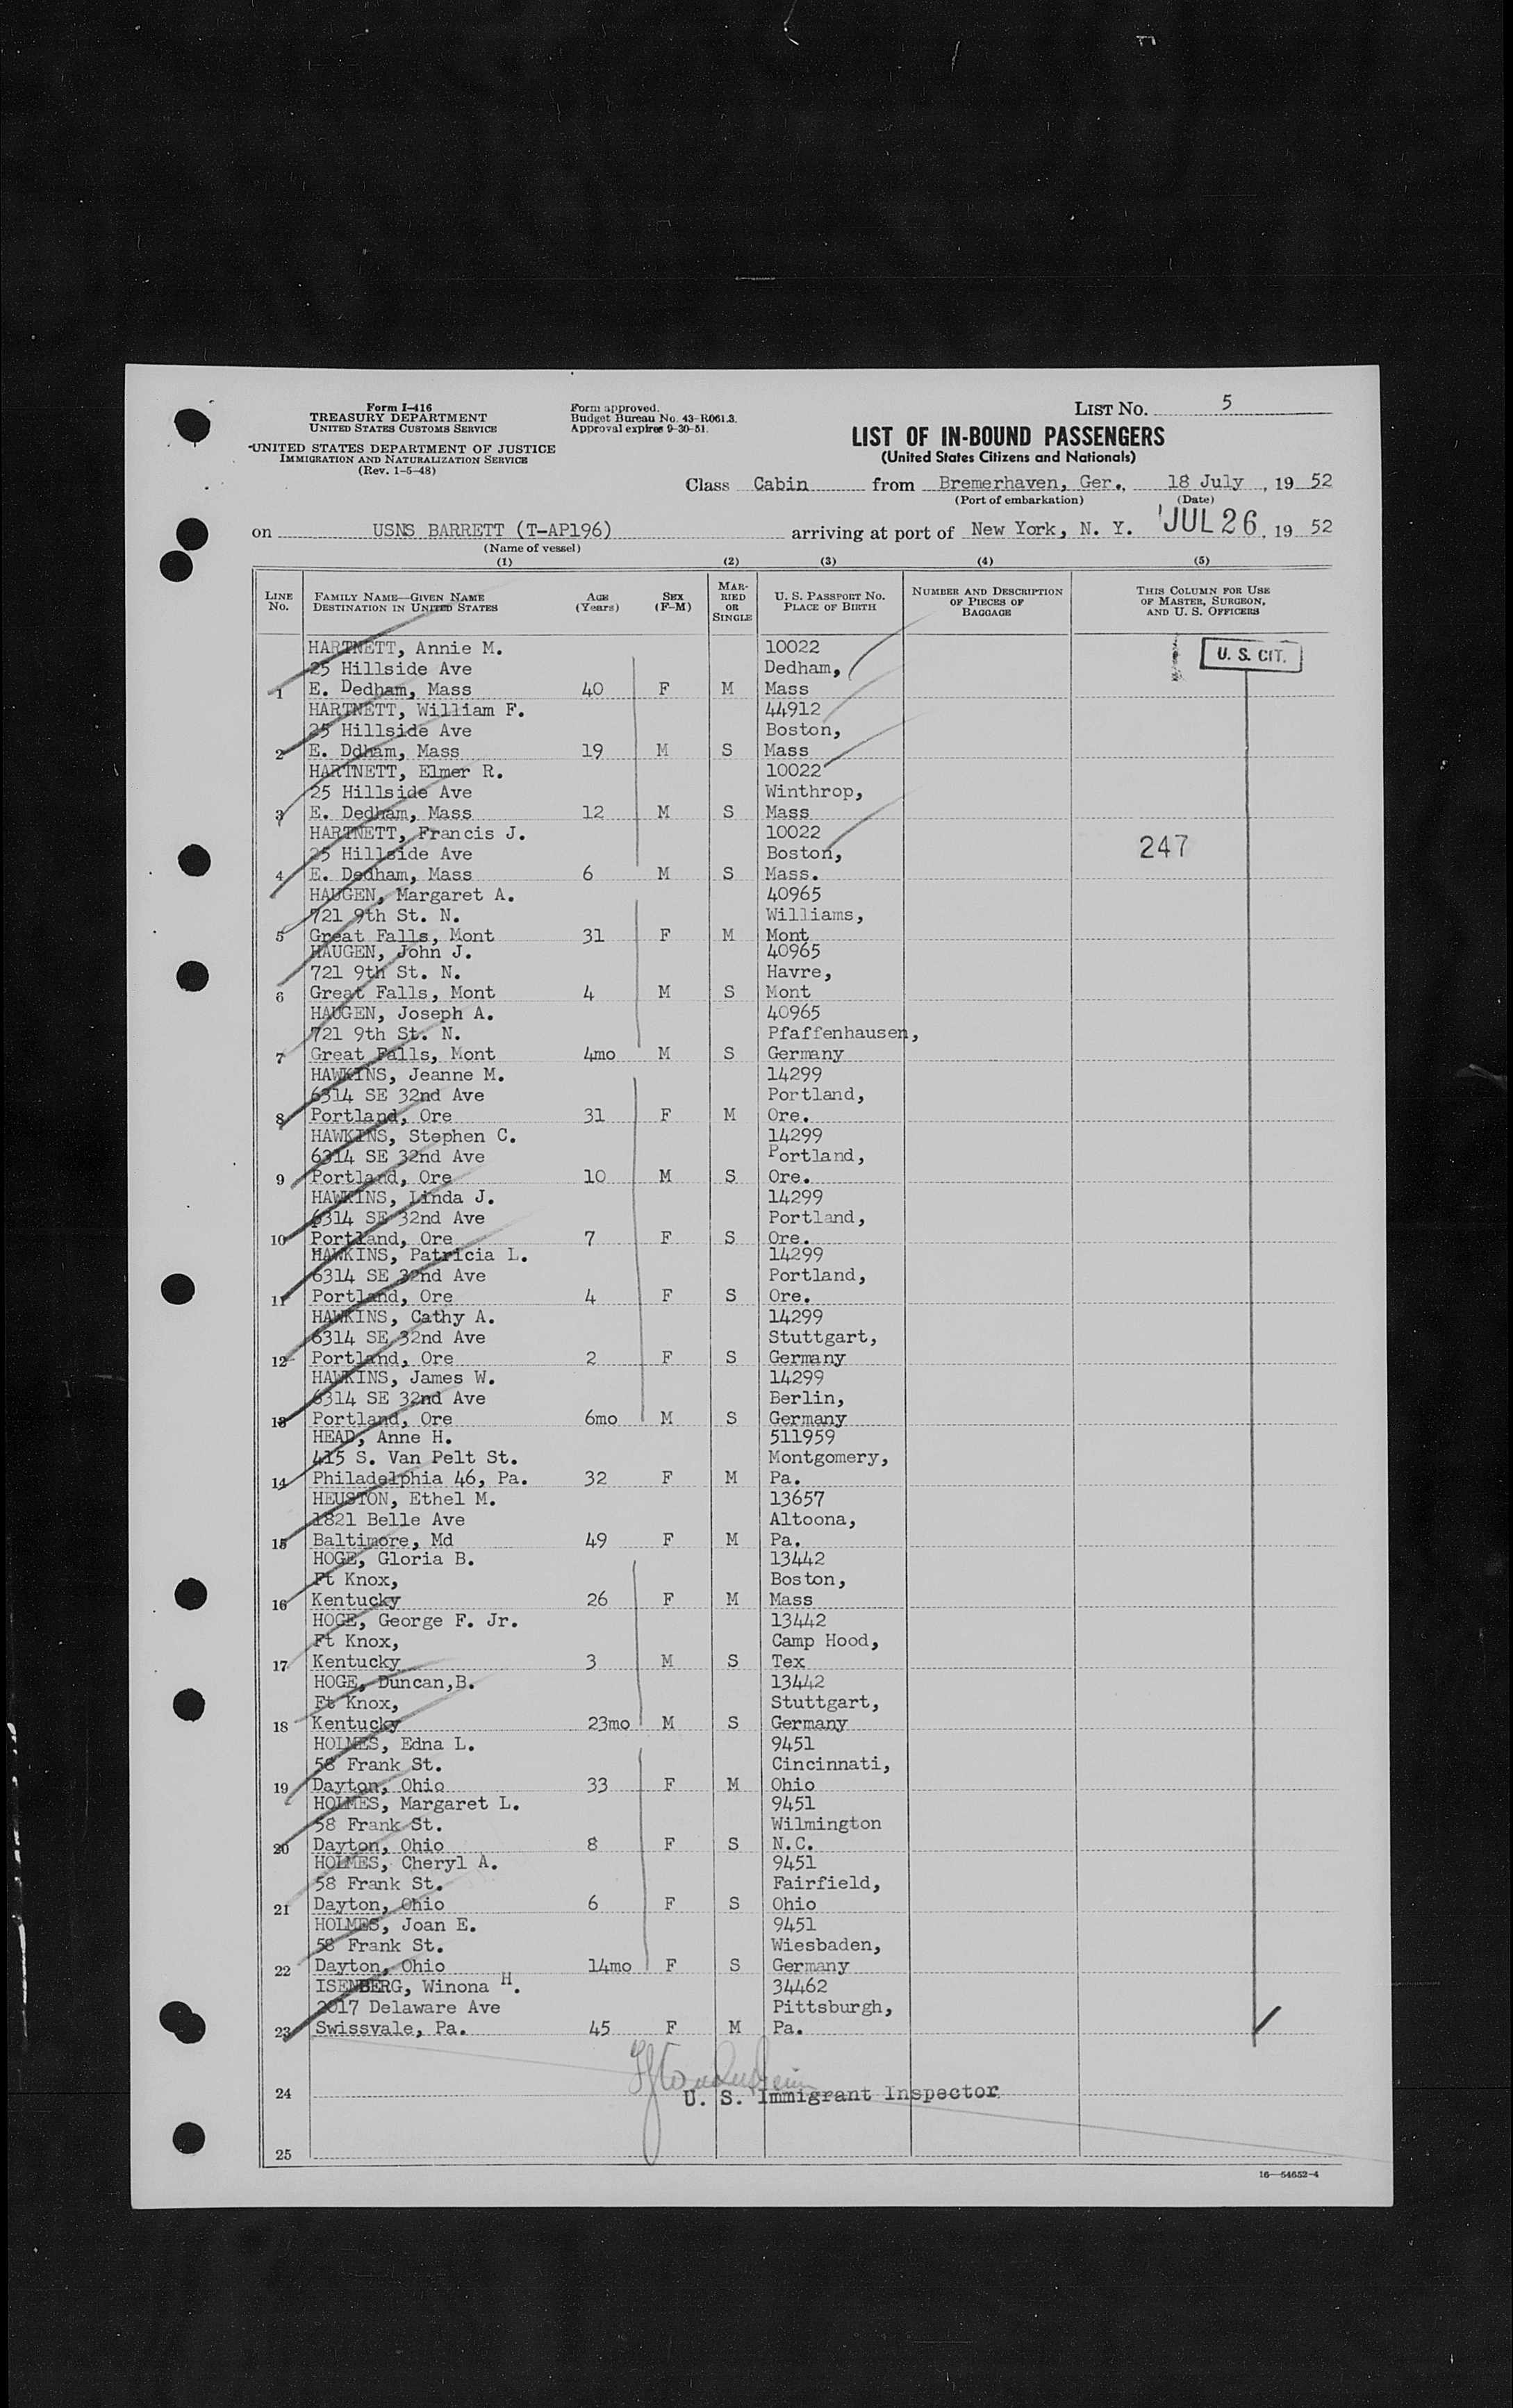 Form I-416
TREASURY DEPARTMENT
UNITED STATES CUSTOMS SERVICE
UNITED STATES DEPARTMENT OF JUSTICE
IMMIGRATION AND NATURALIZATION SERVICE
(Rev. 1-5-48)
Form approved.
Budget Bureau No. 43-R061.3.
Approval expires 9-30-51.
LIST NO. 5
LIST OF IN-BOUND PASSENGERS
(United States Citizens and Nationals)
Class Cabin from Bremerhaven, Ger., 18 July, 19 52
(Port of embarkation) (Date)
on USNS BARRETT (T-AP196) arriving at port of New York, N. Y. JUL 26, 19 52
(Name of vessel)
(1) (2) (3) (4) (5)
LINE No. FAMILY NAME—GIVEN NAME DESTINATION IN UNITED STATES AGE (Years) SEX (F-M) MARRIED OR SINGLE U. S. PASSPORT NO. PLACE OF BIRTH NUMBER AND DESCRIPTION OF PIECES OF BAGGAGE THIS COLUMN FOR USE OF MASTER, SURGEON, AND U. S. OFFICERS
HARTNETT, Annie M. 10022
25 Hillside Ave Dedham, U. S. CIT.
1 E. Dedham, Mass 40 F M Mass
HARTNETT, William F. 44912
25 Hillside Ave Boston,
2 E. Ddham, Mass 19 M S Mass
HARTNETT, Elmer R. 10022
25 Hillside Ave Winthrop,
3 E. Dedham, Mass 12 M S Mass
HARTNETT, Francis J. 10022
25 Hillside Ave Boston, 247
4 E. Dedham, Mass 6 M S Mass.
HAUGEN, Margaret A. 40965
721 9th St. N. Williams,
5 Great Falls, Mont 31 F M Mont
HAUGEN, John J. 40965
721 9th St. N. Havre,
6 Great Falls, Mont 4 M S Mont
HAUGEN, Joseph A. 40965
721 9th St. N. Pfaffenhausen,
7 Great Falls, Mont 4mo M S Germany
HAWKINS, Jeanne M. 14299
6314 SE 32nd Ave Portland,
8 Portland, Ore 31 F M Ore.
HAWKINS, Stephen C. 14299
6314 SE 32nd Ave Portland,
9 Portland, Ore 10 M S Ore.
HAWKINS, Linda J. 14299
6314 SE 32nd Ave Portland,
10 Portland, Ore 7 F S Ore.
HAWKINS, Patricia L. 14299
6314 SE 32nd Ave Portland,
11 Portland, Ore 4 F S Ore.
HAWKINS, Cathy A. 14299
6314 SE 32nd Ave Stuttgart,
12 Portland, Ore 2 F S Germany
HAWKINS, James W. 14299
6314 SE 32nd Ave Berlin,
13 Portland, Ore 6mo M S Germany
HEAD, Anne H. 511959
415 S. Van Pelt St. Montgomery,
14 Philadelphia 46, Pa. 32 F M Pa.
HEUSTON, Ethel M. 13657
1821 Belle Ave Altoona,
15 Baltimore, Md 49 F M Pa.
HOGE, Gloria B. 13442
Ft Knox, Boston,
16 Kentucky 26 F M Mass
HOGE, George F. Jr. 13442
Ft Knox, Camp Hood,
17 Kentucky 3 M S Tex
HOGE, Duncan,B. 13442
Ft Knox, Stuttgart,
18 Kentucky 23mo M S Germany
HOLMES, Edna L. 9451
58 Frank St. Cincinnati,
19 Dayton, Ohio 33 F M Ohio
HOLMES, Margaret L. 9451
58 Frank St. Wilmington
20 Dayton, Ohio 8 F S N.C.
HOLMES, Cheryl A. 9451
58 Frank St. Fairfield,
21 Dayton, Ohio 6 F S Ohio
HOLMES, Joan E. 9451
58 Frank St. Wiesbaden,
22 Dayton, Ohio 14mo F S Germany
ISENBERG, Winona H. 34462
2017 Delaware Ave Pittsburgh,
23 Swissvale, Pa. 45 F M Pa.
24 U. S. Immigrant Inspector
25
16—54652-4